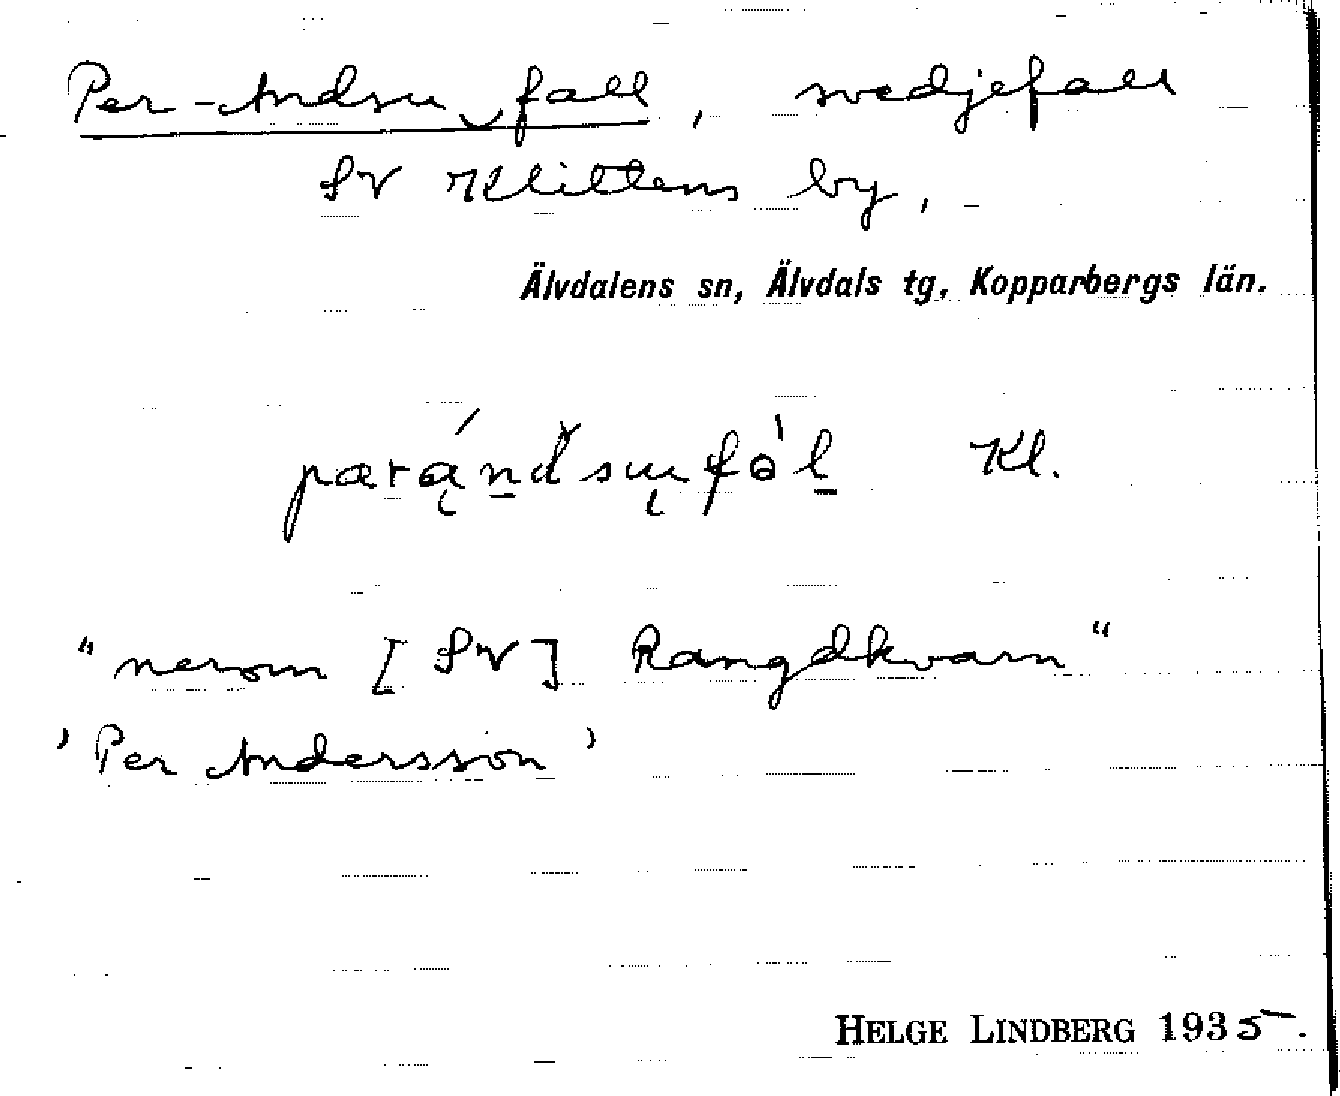 Per-Andsu fall, svedjefall
SV Klittens by,
Älvdalens sn, Älvdals tg, Kopparbergs län.
Kl.
"nerom [SV] Rangdkvarn"
'Per Andersson'
HELGE LINDBERG 1935.